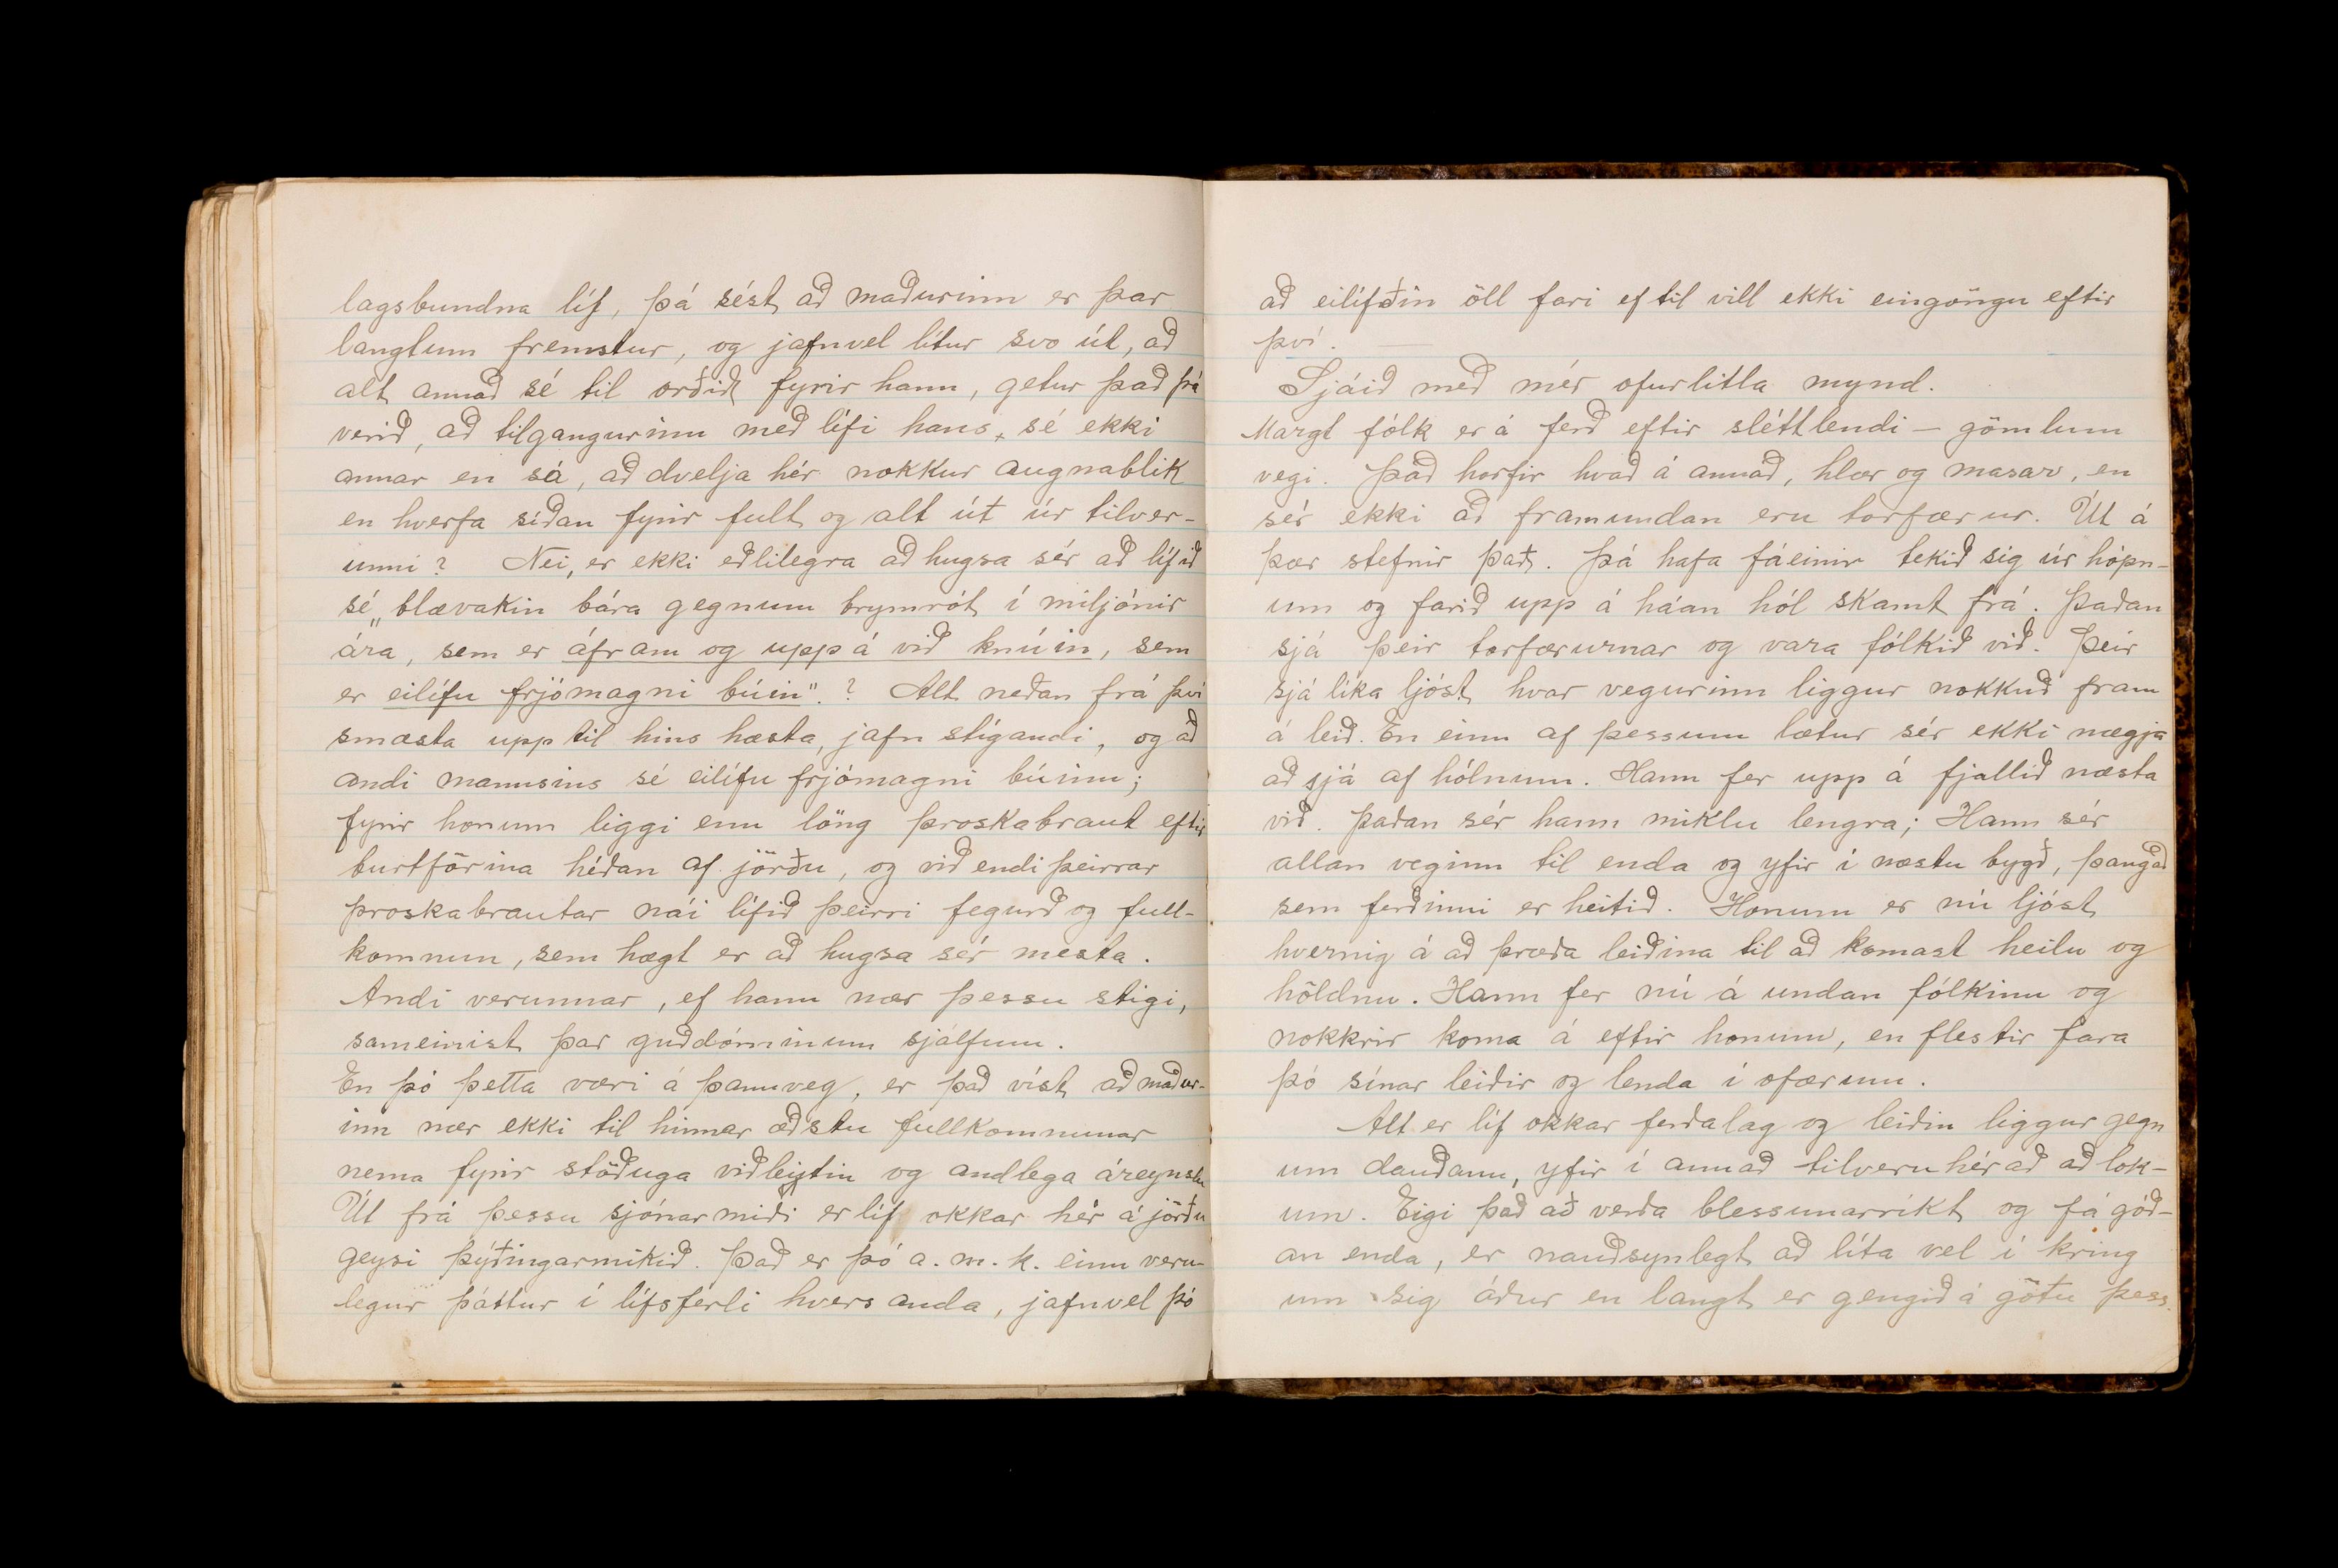 lagsbundna líf, þá sést að maðurinn er þar
langtum fremstur, og jafnvel lítur svo út, að
alt annað sé til orðið fyrir hann, getur það þá
verið, að tilgangurinn með lífi hans, sé ekki
annar en sá, að dvelja hér nokkur augnablik
en hverfa síðan fyrir fult og alt út úr tilver-
unni? Nei, er ekki eðlilegra að hugsa sér að lífið
sé „blævakin bára gegnum brymrót í miljónir
ára, sem er áfram og upp á við knúin, sem
er eilífu frjómagni búin". ? Alt neðan frá því
smæsta upp til hins hæsta, jafn stígandi, og að
andi mannsins sé eilífu frjómagni búinn;
fyrir honum liggi enn löng þroskabraut eftir
burtförina héðan af jörðu, og við endi þeirrar
þroskabrautar nái lífið þeirri fegurð og full-
komnun, sem hægt er að hugsa sér mesta.
Andi verunnar, ef hann nær þessu stigi,
sameinist þar guðdóminum sjálfum.
En þó þetta væri á þannveg, er það víst að maður-
inn nær ekki til hinnar æðstu fullkomnunar
nema fyrir stöðuga viðleytin og andlega áreynslu
Út frá þessu sjónarmiði er líf okkar hér á jörðu
geysi þýðingarmikið. Það er þó a. m. k. einn veru-
legur þáttur í lífsferli hvers anda, jafnvel þó
að eilífðin öll fari ef til vill ekki eingöngu eftir
því. —
Sjáið með mér ofurlitla mynd.
Margt fólk er á ferð eftir sléttlendi — gömlum
vegi. Það horfir hvað á annað, hlær og masar, en
sér ekki að framundan eru torfærur. Út á
þær stefnir það. Þá hafa fáeinir tekið sig úr hópn-
um og farið upp á háan hól skamt frá. Þaðan
sjá þeir torfærurnar og vara fólkið við. Þeir
sjá líka ljóst hvar vegurinn liggur nokkuð fram
á leið. En einn af þessum lætur sér ekki nægja
að sjá af hólnum. Hann fer upp á fjallið næsta
við. Þaðan sér hann miklu lengra; Hann sér
allan veginn til enda og yfir í næstu bygð, þangað
sem ferðinni er heitið. Honum er nú ljóst
hvernig á að þræða leiðina til að komast heilu og
höldnu. Hann fer nú á undan fólkinu og
nokkrir koma á eftir honum, en flestir fara
þó sínar leiðir og lenda í ofærum.
Alt er líf okkar ferðalag og leiðin liggur gegn
um dauðann, yfir í annað tilveruhérað að lok-
um. Eigi það að verða blessunarríkt og fá góð-
an enda, er nauðsynlegt að líta vel í kring
um sig áður en langt er gengið á götu þess.